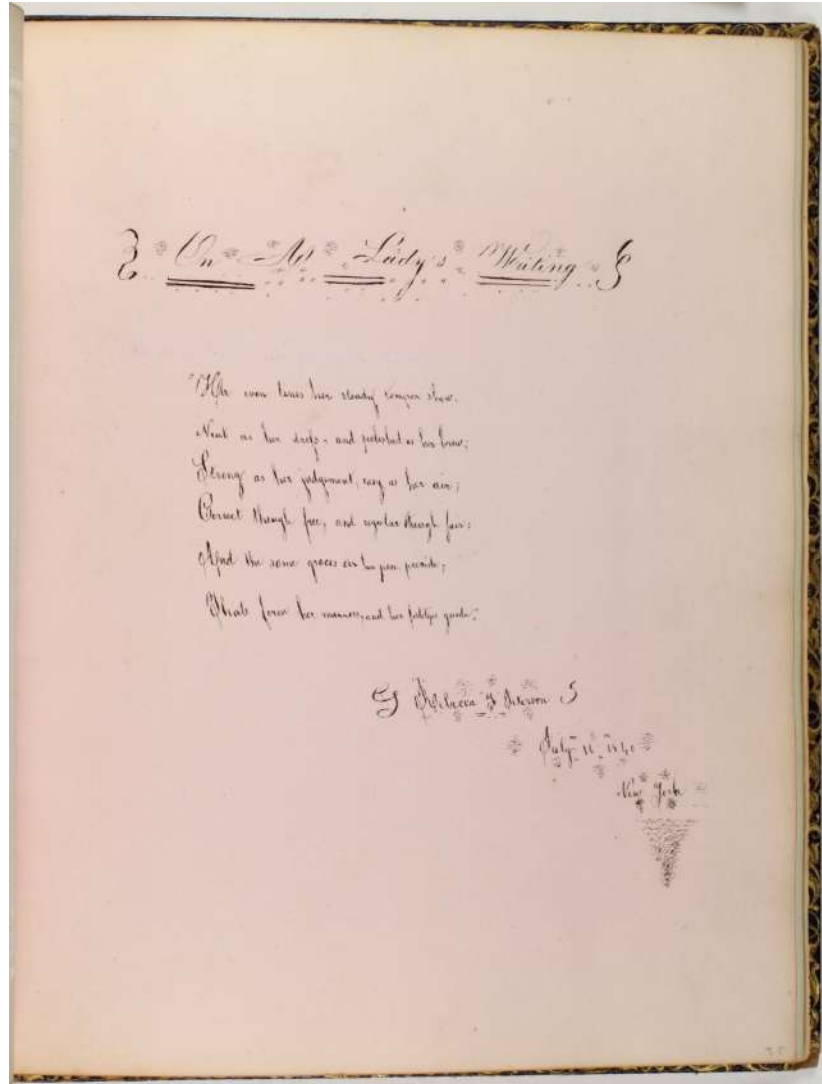 On A Lady's Writing
Her even lines her steady temper show.
Neat as her dress, and polished as her brow;
Strong as her judgement, easy as her air;
Correct though free, and regular though fair:
And the same graces o'er her pen preside,
That form her manners, and her footsteps guide.
Rebecca
July 11th 1840
New York